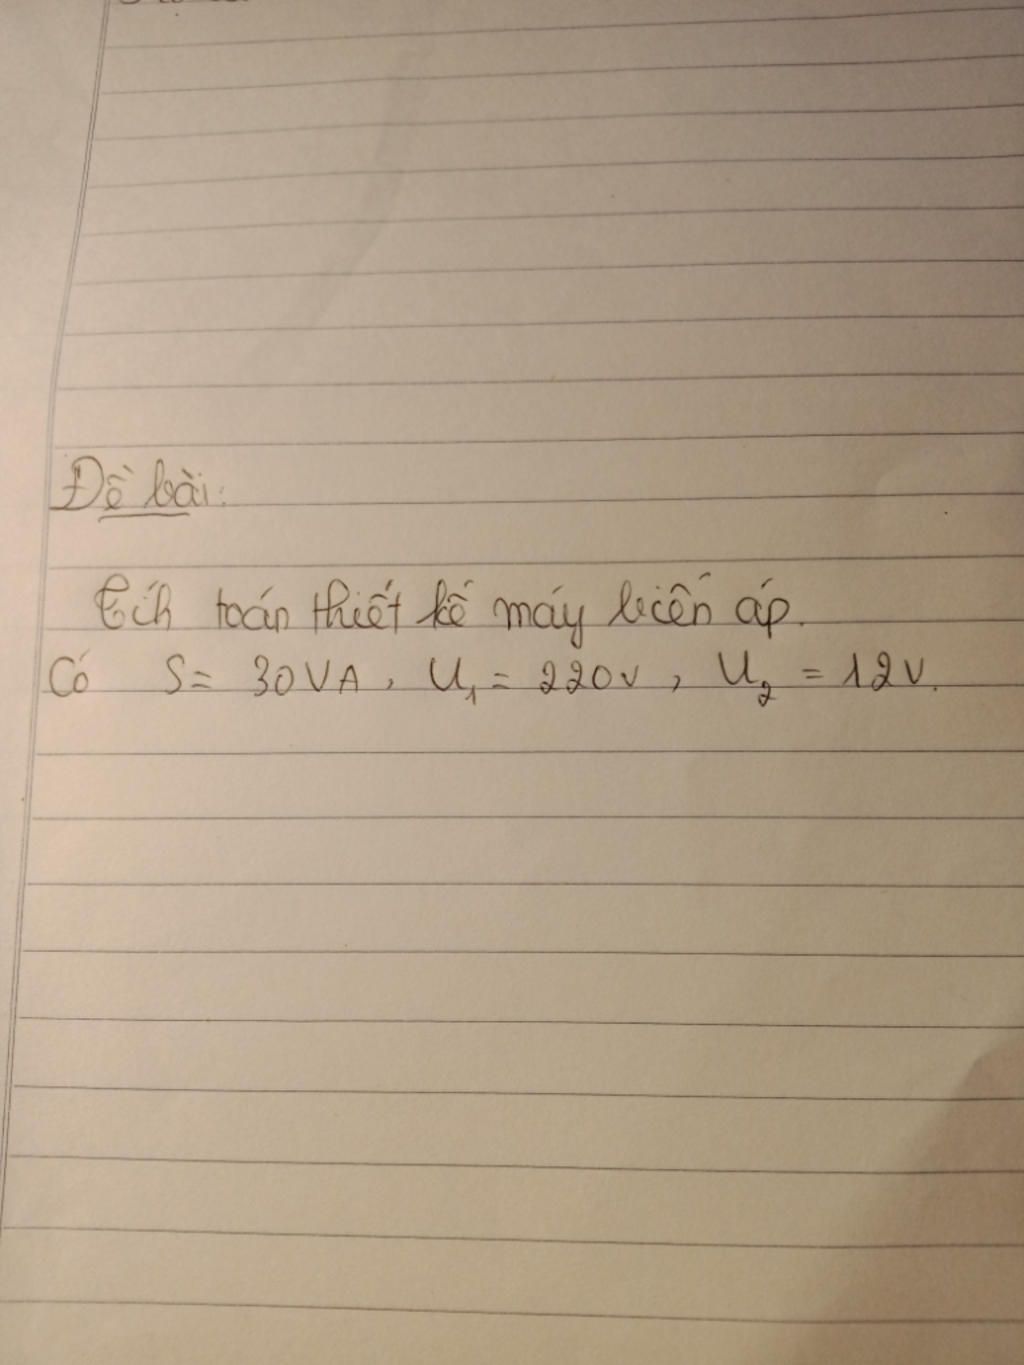 Đề bài:
Tính toán thiết kế máy biến áp.
Có S = 30VA, U₁ = 220V, U₂ = 12V.